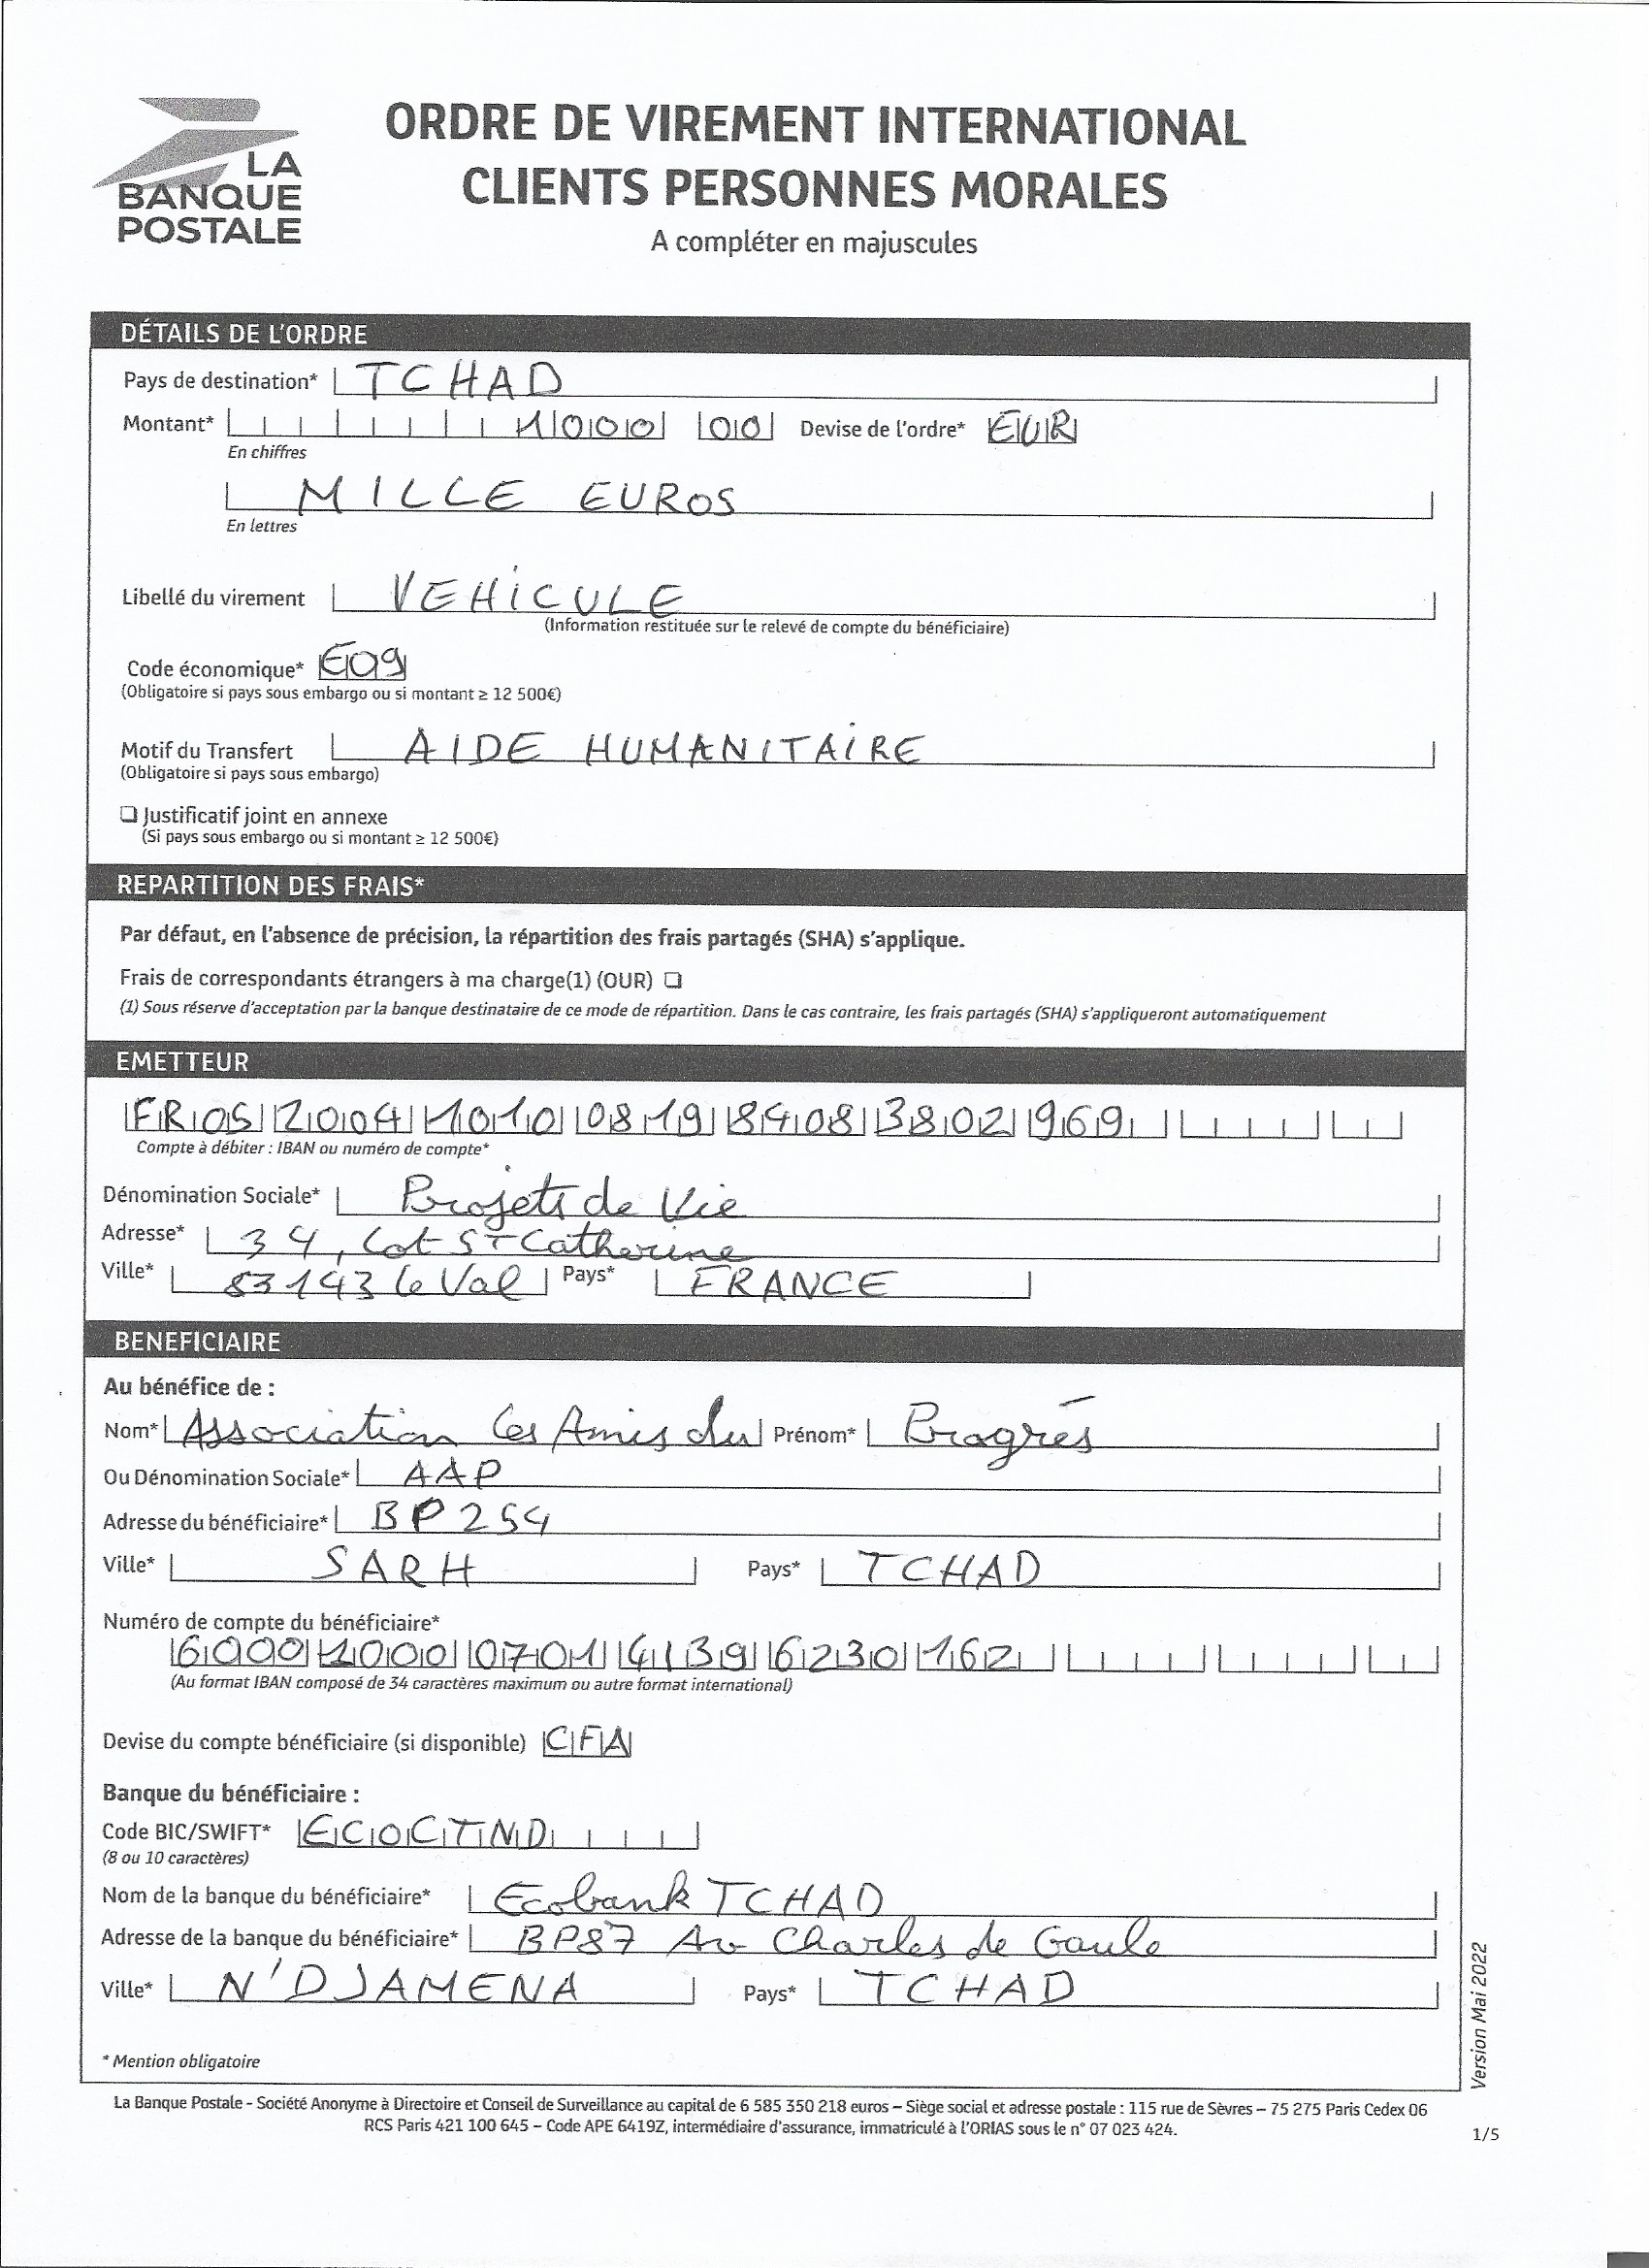 LA
BANQUE
POSTALE
ORDRE DE VIREMENT INTERNATIONAL
CLIENTS PERSONNES MORALES
A compléter en majuscules
DÉTAILS DE L'ORDRE
Pays de destination* TCHAD
Montant* 1000 00 Devise de l'ordre* EUR
En chiffres
MILLE EUROS
En lettres
Libellé du virement VEHICULE
(Information restituée sur le relevé de compte du bénéficiaire)
Code économique* E09
(Obligatoire si pays sous embargo ou si montant ≥ 12 500€)
Motif du Transfert AIDE HUMANITAIRE
(Obligatoire si pays sous embargo)
❑ Justificatif joint en annexe
(Si pays sous embargo ou si montant ≥ 12 500€)
REPARTITION DES FRAIS*
Par défaut, en l'absence de précision, la répartition des frais partagés (SHA) s'applique.
Frais de correspondants étrangers à ma charge(1) (OUR) ❑
(1) Sous réserve d'acceptation par la banque destinataire de ce mode de répartition. Dans le cas contraire, les frais partagés (SHA) s'appliqueront automatiquement
EMETTEUR
FR05 2004 1010 0819 8408 3802 969
Compte à débiter : IBAN ou numéro de compte*
Dénomination Sociale* Projets de Vie
Adresse* 34, Lot St Catherine
Ville* 83143 le Val Pays* FRANCE
BENEFICIAIRE
Au bénéfice de :
Nom* Association les Amis du Prénom* Progrés
Ou Dénomination Sociale* AAP
Adresse du bénéficiaire* BP 254
Ville* SARH Pays* TCHAD
Numéro de compte du bénéficiaire*
6000 1000 0701 4139 6230 162
(Au format IBAN composé de 34 caractères maximum ou autre format international)
Devise du compte bénéficiaire (si disponible) CFA
Banque du bénéficiaire :
Code BIC/SWIFT* ECOCTND
(8 ou 10 caractères)
Nom de la banque du bénéficiaire* Ecobank TCHAD
Adresse de la banque du bénéficiaire* BP87 Av Charles de Gaule
Ville* N'DJAMENA Pays* TCHAD
* Mention obligatoire
Version Mai 2022
La Banque Postale - Société Anonyme à Directoire et Conseil de Surveillance au capital de 6 585 350 218 euros – Siège social et adresse postale : 115 rue de Sèvres – 75 275 Paris Cedex 06
RCS Paris 421 100 645 – Code APE 6419Z, intermédiaire d'assurance, immatriculé à l'ORIAS sous le n° 07 023 424.
1/5